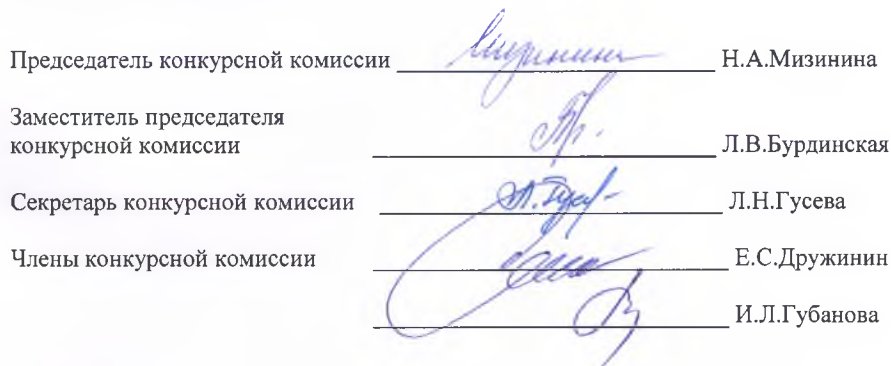 Председатель конкурсной комиссии Н.А.Мизинина
Заместитель председателя
конкурсной комиссии Л.В.Бурдинская
Секретарь конкурсной комиссии Л.Н.Гусева
Члены конкурсной комиссии Е.С.Дружинин
И.Л.Губанова